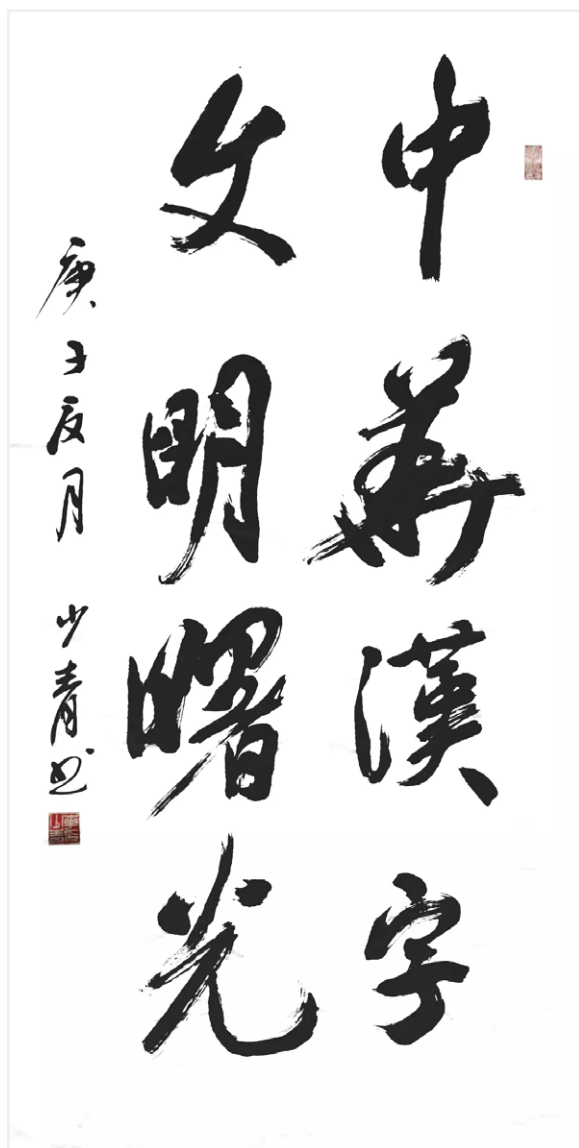 中華漢字
文明曙光
庚子夏月 少青书